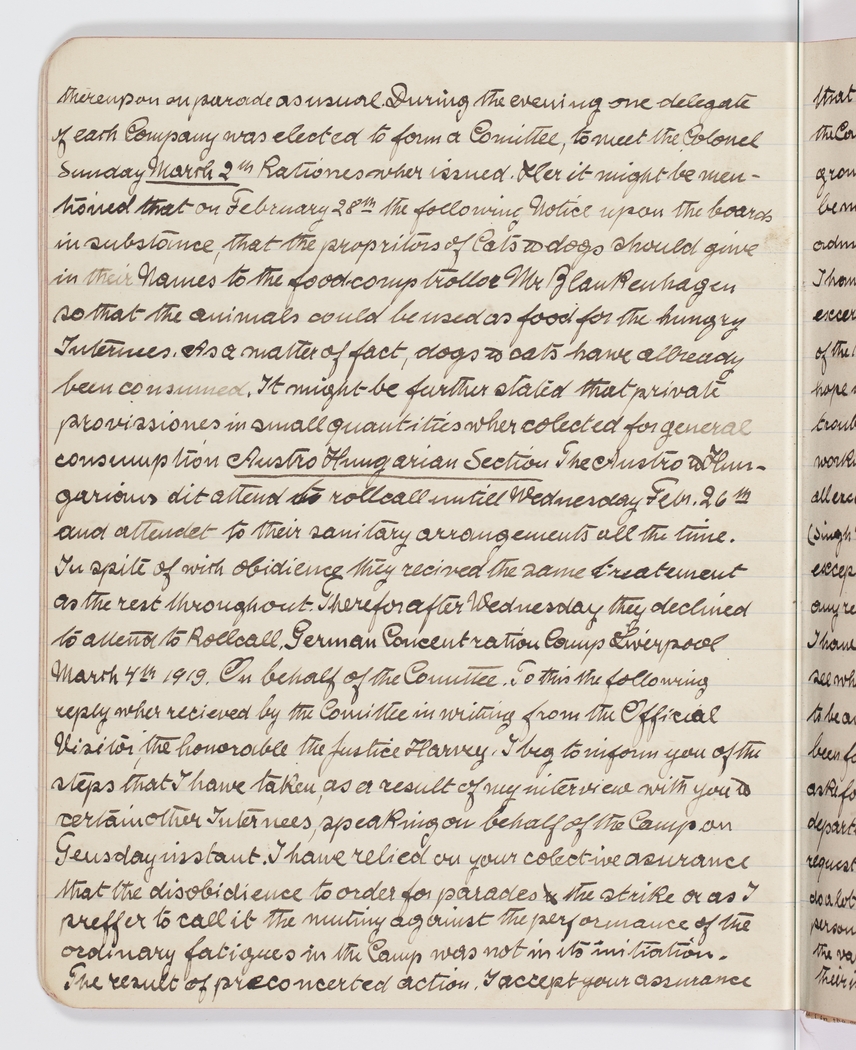 thereupon on parade as usual. During the evening one delegate
of each Company was elected to form a Comittee, to meet the Colonel
Sunday March 2th Rationes wher issued. Her it might be men-
tioned that on February 28th the following Notice upon the boards
in substance, that the propritors of Cats & dogs should give
in their Names to the food comptroller Mr Blankenhagen
so that the animals could be used as food for the hungry
Internees. As a matter of fact, dogs & cats have allready
been consumed. It might be further stated that private
provissiones in small quantities wher colected for general
consumption Austro Hungarian Section The Austro & Hun-
garians dit attend to rollcall untill Wednesday Febr. 26th
and attendet to their sanitary arrangements all the time.
In spite of with obidience they recived the same treatement
as the rest throughout. Therefor after Wednesday they declined
to attend to Rollcall. German Concentration Camp Liverpool
March 4th 1919. On behalf of the Comittee. To this the following
reply wher recieved by the Comittee in writing from the Official
Visitor, the honorable the Justice Harvey. I beg to inform you of the
steps that I have taken, as a result of my interview with you &
certain other Internees, speaking on behalf of the Camp on
Teusday instant. I have relied on your colective asurance
that the disobidience to order for parades & the strike or as I
preffer to call it the mutiny against the performance of the
ordinary fatigues in the Camp was not in its initiation.
The result of preconcerted action. I accept your assurance
that
the Co
grou
be m
I hav
excer
of the
hope
troub
work
all exc
(Singh
excep
any re
I have
see wh
to be a
been fo
ask fo
depart
request
do a lot
person
the va
their